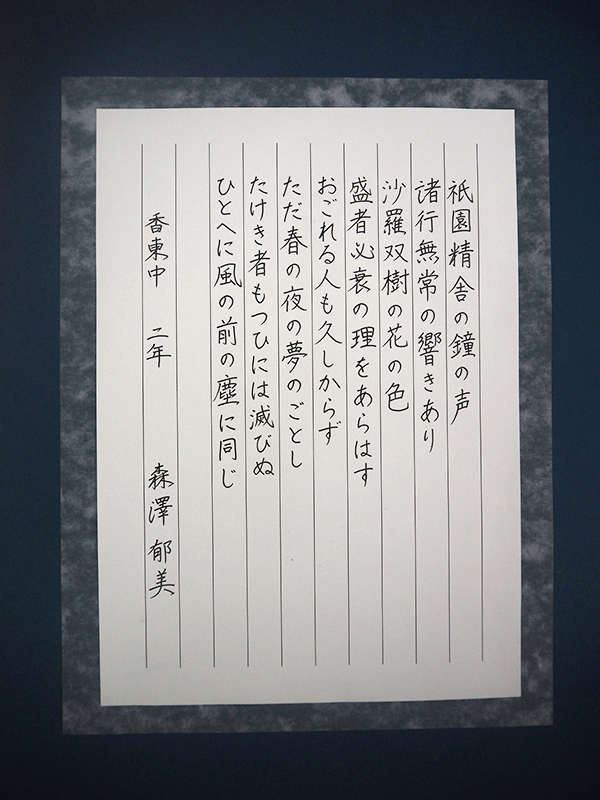 祇園精舎の鐘の声
諸行無常の響きあり
沙羅双樹の花の色
盛者必衰の理をあらはす
おごれる人も久しからず
ただ春の夜の夢のごとし
たけき者もつひには滅びぬ
ひとへに風の前の塵に同じ
香東中 二年 森澤郁美